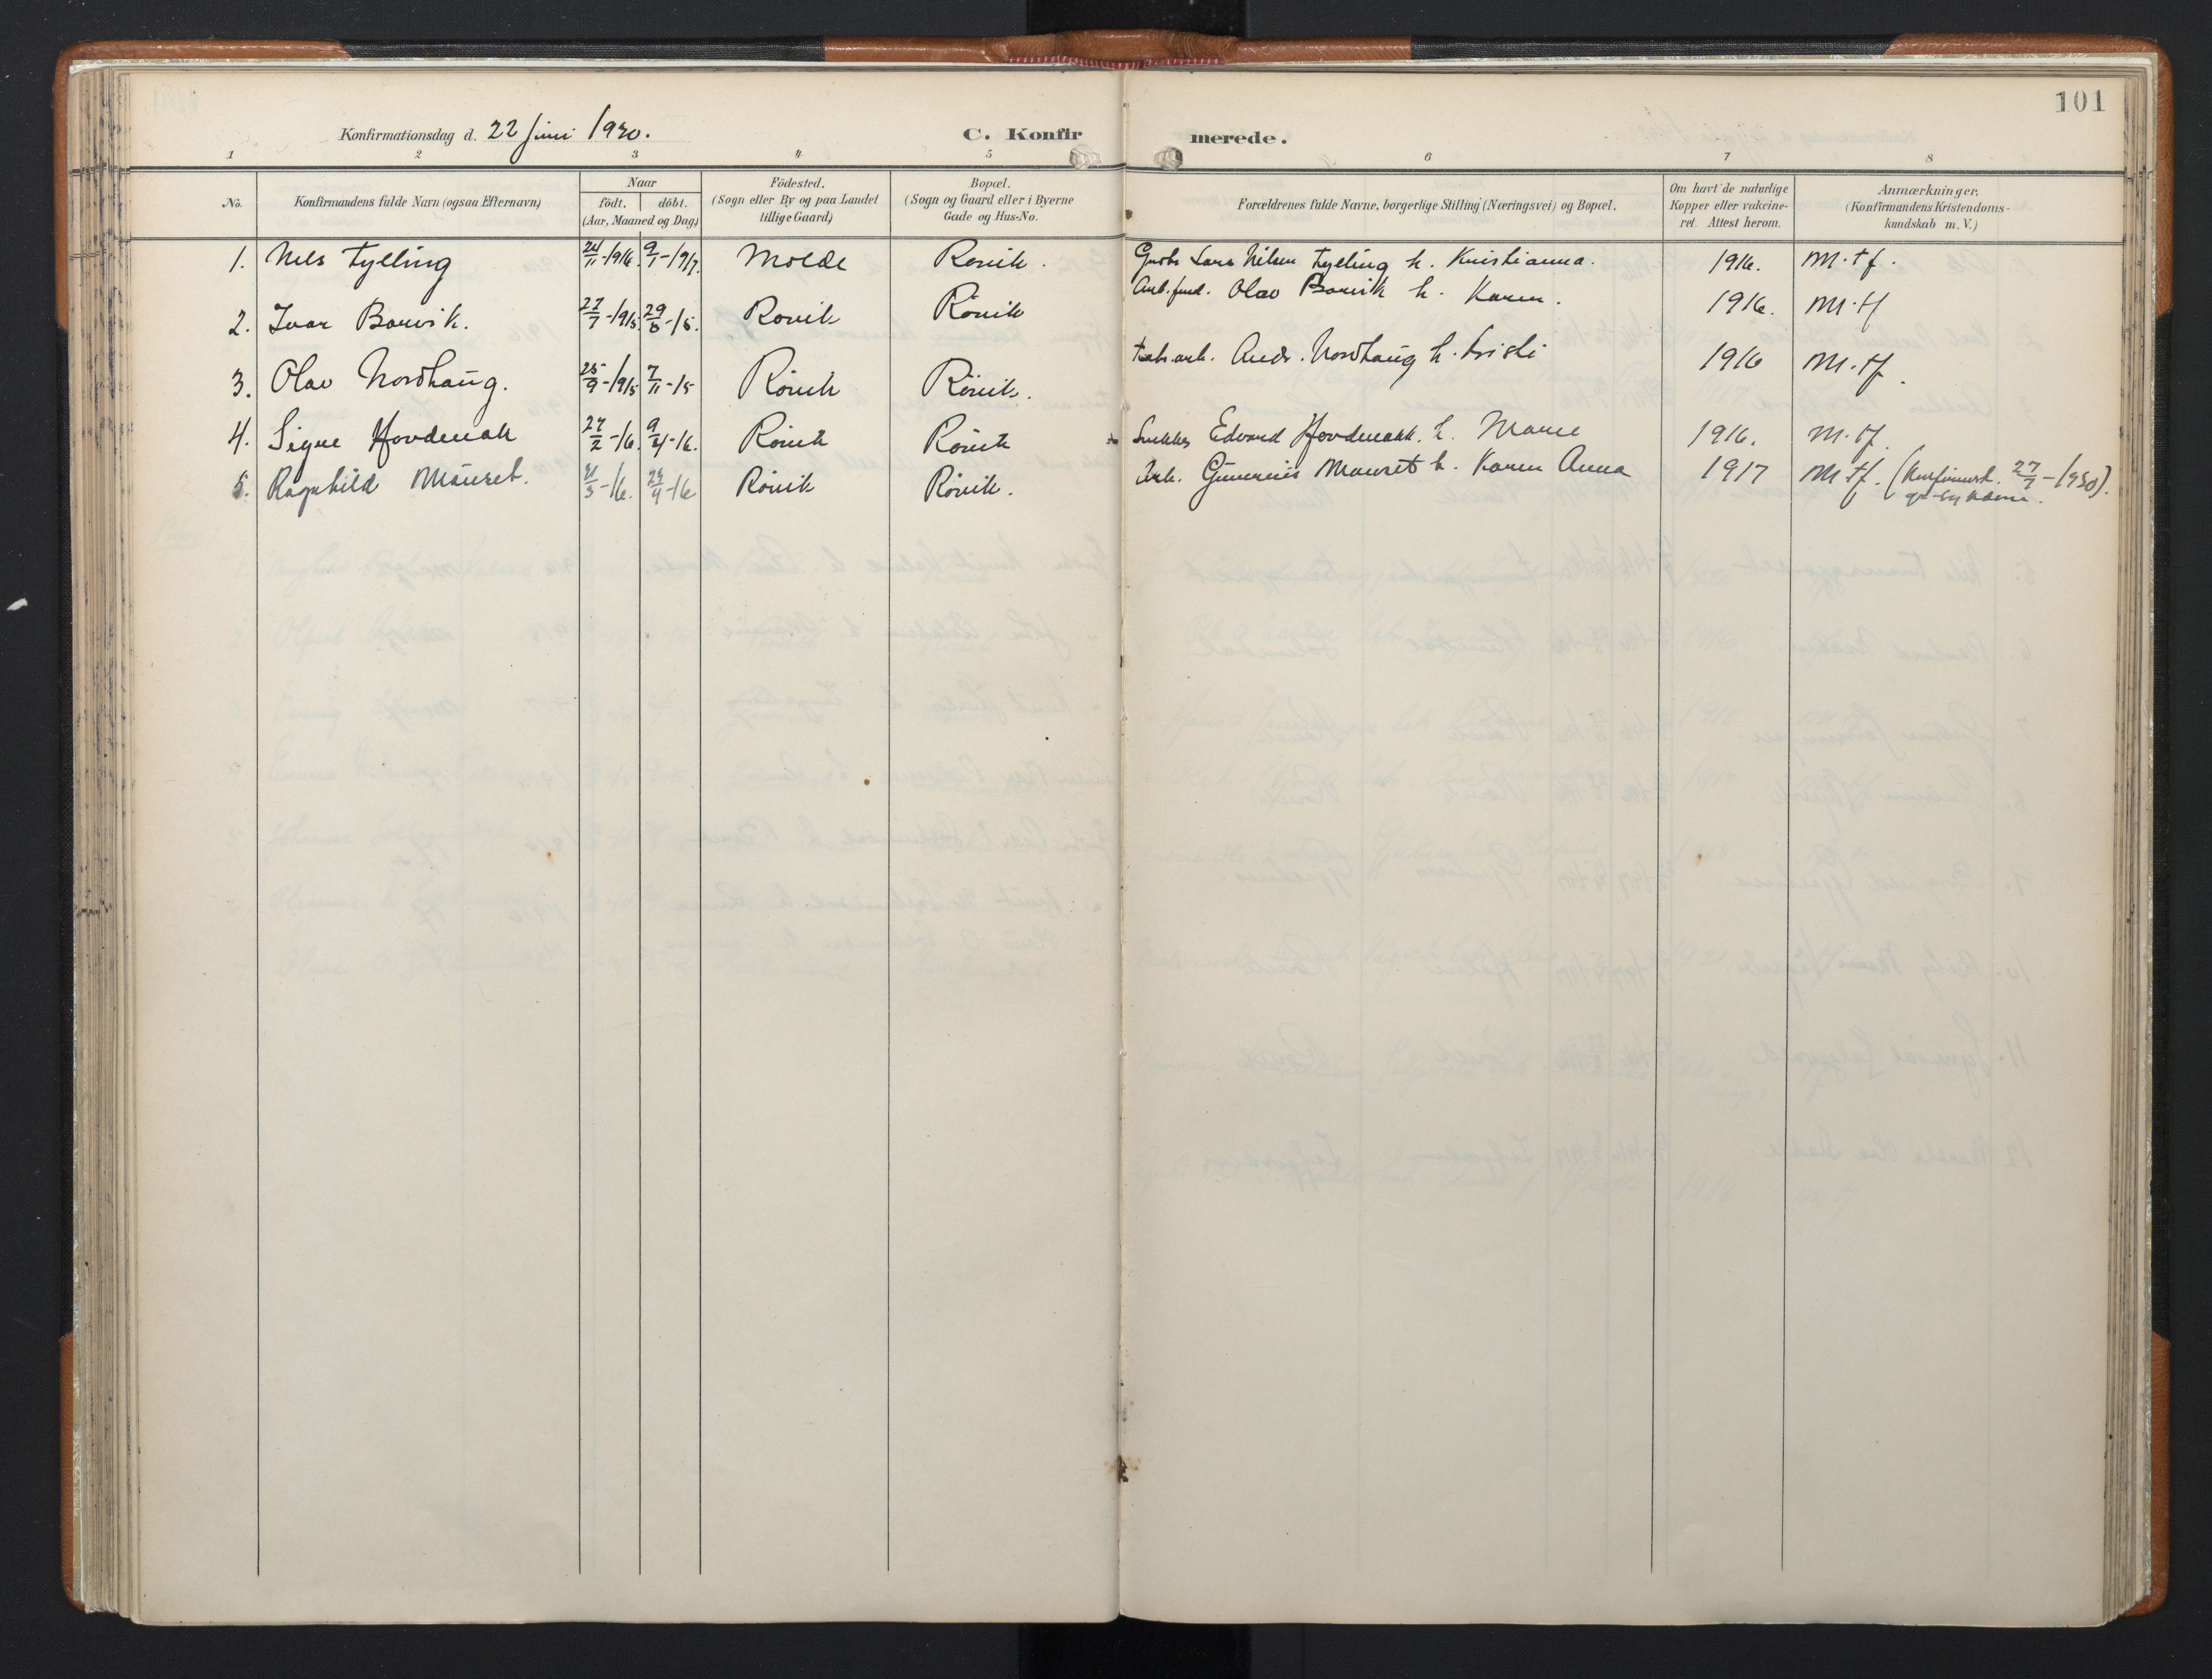 101
Konfirmationsdag d. 22 Juni 1930.
C. Konfirmerede.
1 2 3 4 5 6 7 8
No. Konfirmandens fulde Navn (ogsaa Efternavn) Naar födt. döbt. (Aar, Maaned og Dag) Födested. (Sogn eller By og paa Landet tillige Gaard) Bopæl. (Sogn og Gaard eller i Byerne Gade og Hus-No. Forældrenes fulde Navne, borgerlige Stilling (Næringsvei) og Bopæl. Om havt de naturlige Kopper eller vakcineret. Attest herom. Anmærkninger. (Konfirmandens Kristendomskundskab m. V.)
1. Nils Tylling 24/11-1916. 9/1-1917. Molde Rövik. Gbr. Lars Nilsen Tylling h. Kristianna. 1916. M.tf.
2. Ivar Barvik. 27/7-1915. 29/8-15. Rövik Rövik Arb. Olav Barvik h. Karen. 1916. M.tf
3. Olav Nordhaug. 25/9-1915 7/11-15 Rövik Rövik. Fabr.arb. Andr. Nordhaug h. Kristi 1916 M.tf.
4. Signe Hovdenak 27/2-16. 9/4-16. Rövik Rövik Snekker Edvard Hovdenakk h. Marie 1916. M.tf.
5. Ragnhild Mauret. /3-16. 24/4-16 Rövik Rövik. Arb. Gunnerius Mauret h. Karen Anna 1917 M.tf. (Konfirmert 27/7-1930).